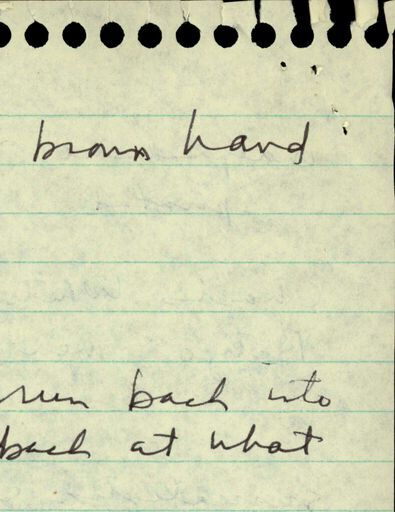 brown hand
run back into
back at what